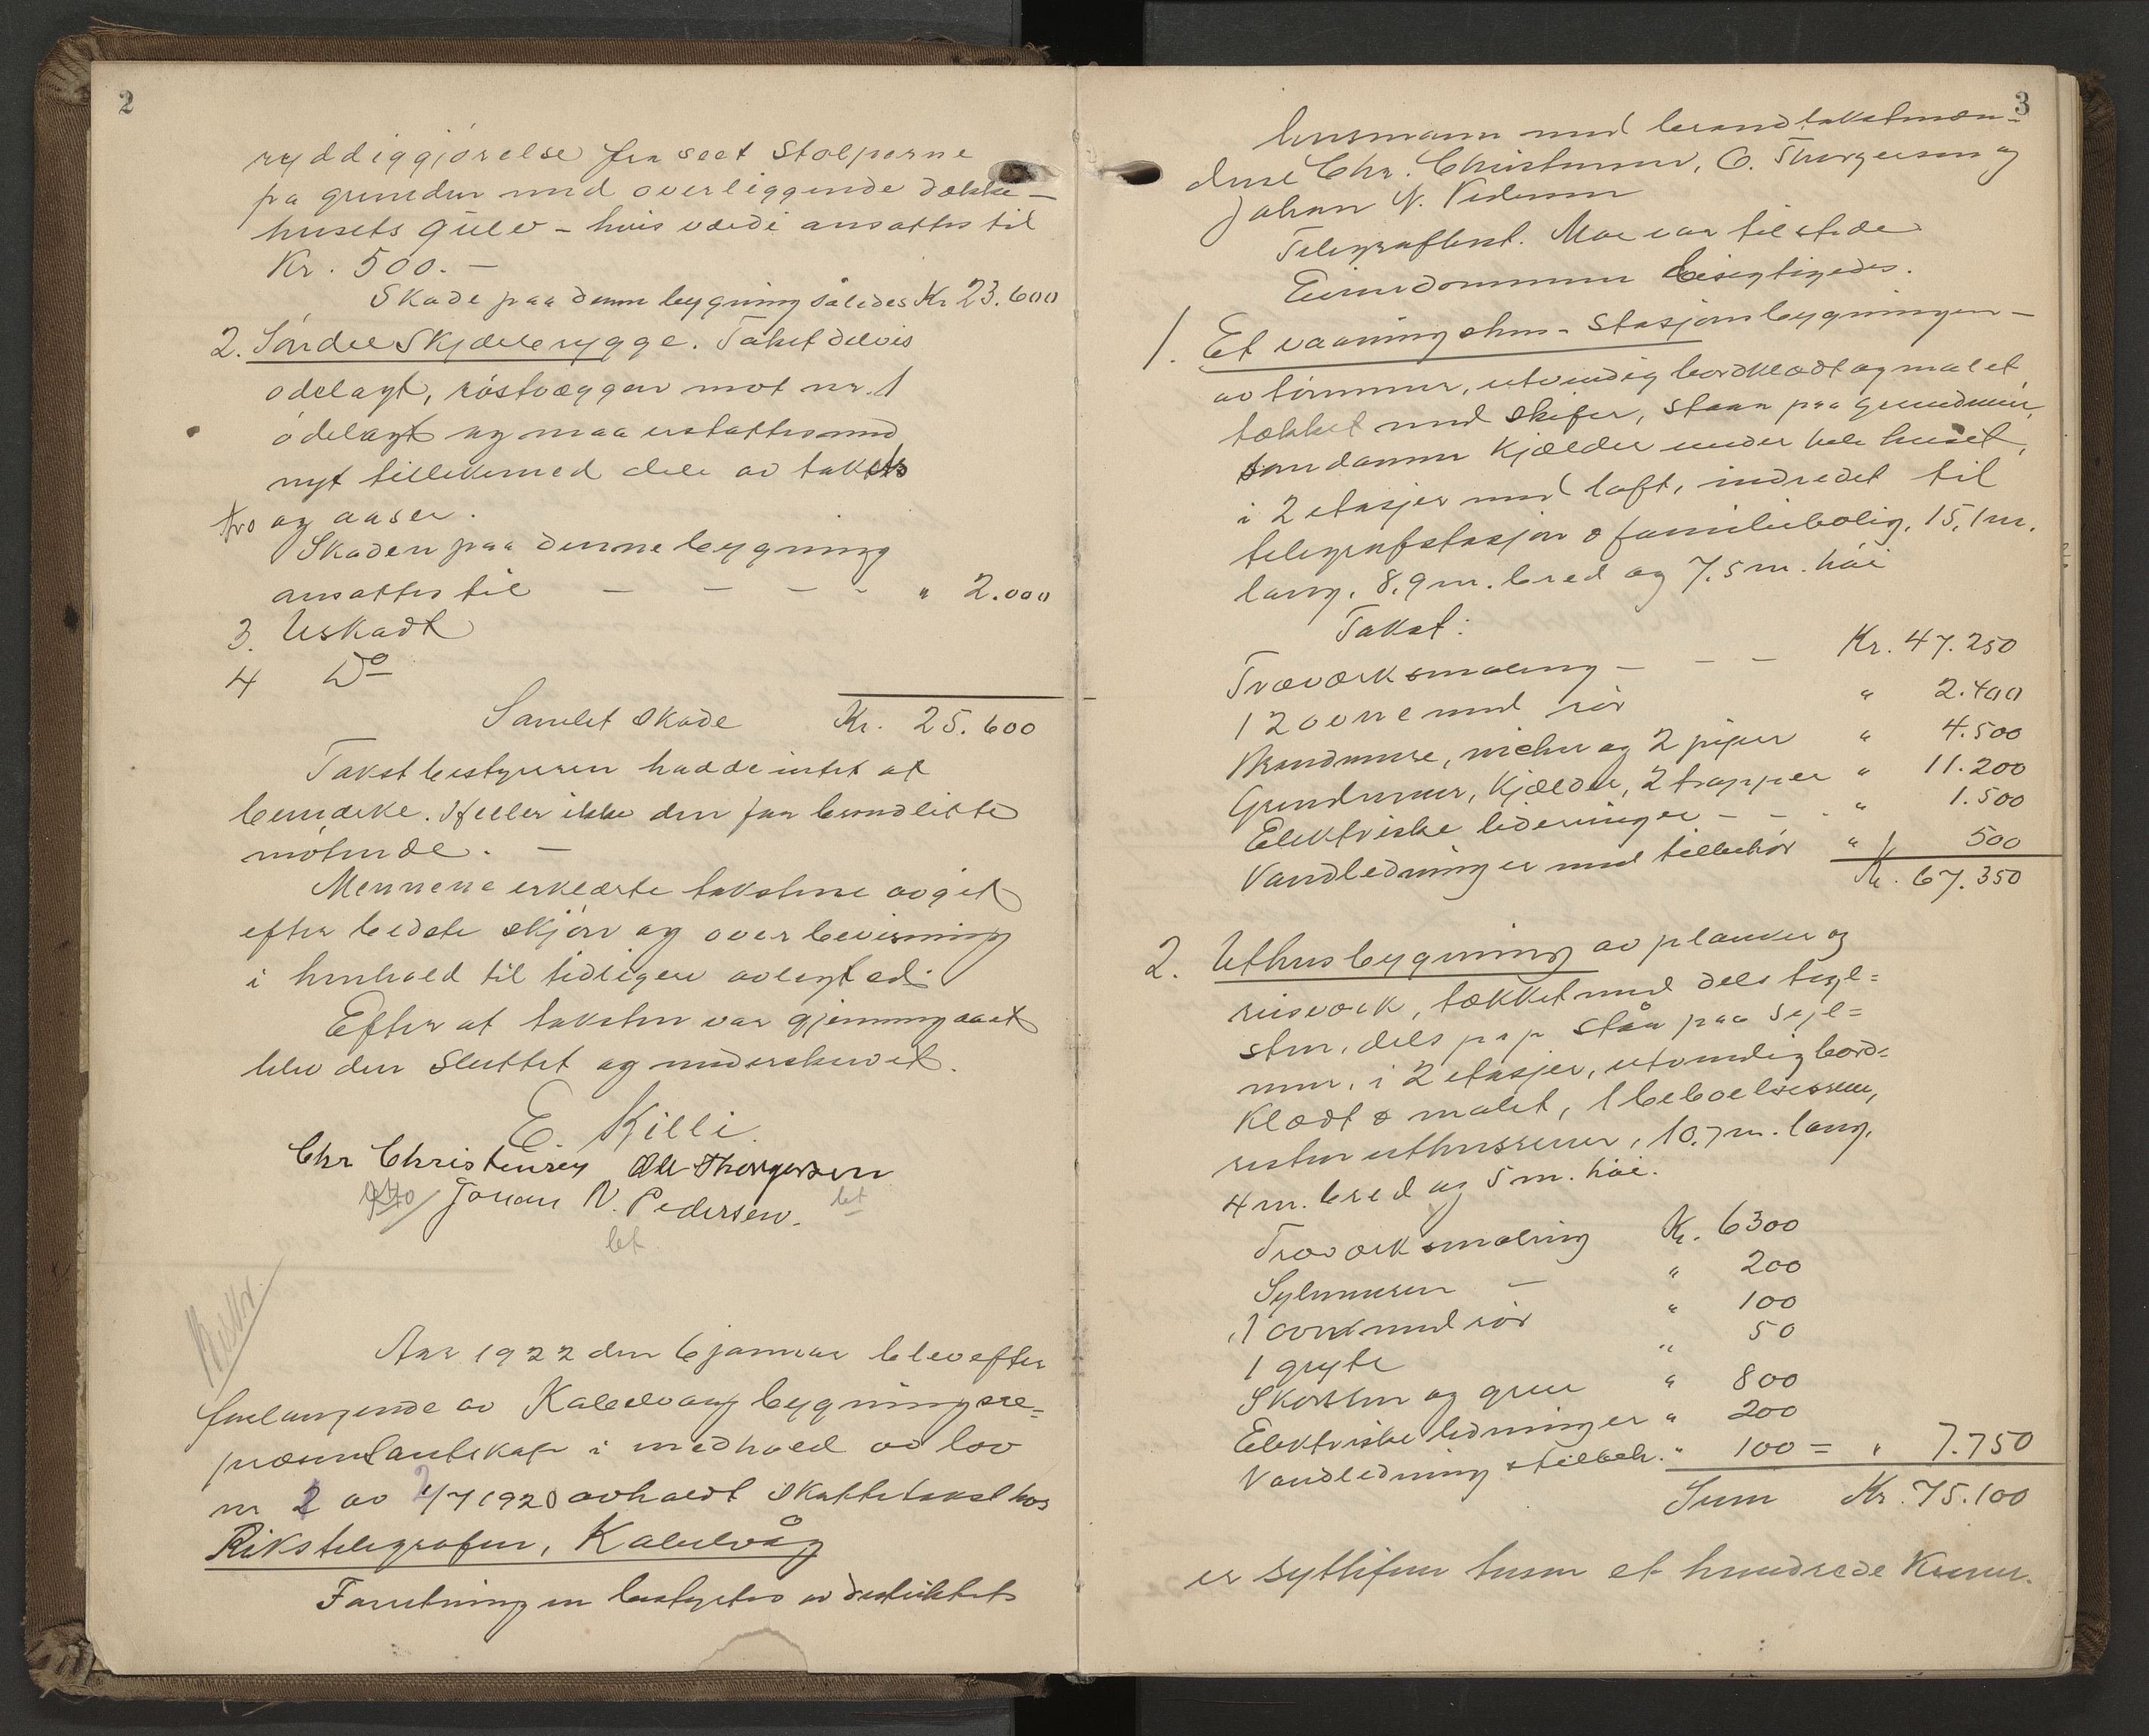 2
ryddiggjörelse fraseet Stolperne
pa grunden med overliggende dække-
husets Gulv - hvis værdi ansattes til
Kr. 500. -
Skade paa denne bygning således Kr 23.600
2. Söndre Skjælbrygge. Taket delvis
ödelagt, röstvæggen mot nr. 1
ödelagt og maa erstattes med
nyt tillikemed dele av takets
tro og aaser.
Skaden paa denne bygning
ansattes til - - - - " 2.000
3. Uskadt
4 Do
Samlet skade Kr. 25.600
Takstbestyreren hadde intet at
bemærke. Heller ikke den for brandlidte
mötende. -
Mennene erklærte takstene avgit
efter bedste skjön og overbevisning
i henhold til tidligere avlagt ed.
Efter at taksten var gjennemgaaet
blev den sluttet og underskrevet.
E. Killi.
Chr Christensen Ole Thorgersen
Johan N. Pedersen. bet
bet
Aar 1922 den 6 januar blev efter
forlangende av Kalvaag bygningsre=
præsentantskap i medhold av lov
nr 2 av 2/7 1920 avholdt skattetakst hos
Rikstelegrafen, Kalvåg
Forretningen bestyrtes av distriktets
3
lensmann med brandtakstmæn-
dene Chr. Christensen, O. Thorgersen og
Johan N. Pedersen
Telegrafbest. Moe var tilstede
Eiendommen besigtigedes.
1. Et vaaningshus - Stasjonsbygningen -
av tömmer, utvendig bordklædt og malet,
tækket med skifer, staar paa grundmur,
som danner kjælder under hele huset,
i 2 etasjer med loft, indredet til
telegrafstasjon & familiebolig, 15,1 m.
lang, 8,9 m. bred og 7,5 m. höi
Takst:
Træværk & maling - - - Kr. 47.250
12 ovne med rör " 2.400
Brandmure, nicher og 2 piper " 4.500
Grundmur, kjælder, 2 trapper " 11.200
Elektriske ledninger - - . " 1.500
Vandledninger med tilbehör " 500
Kr. 67.350
2. Uthusbygning av planker og
reisverk, tækket med dels tegl=
sten, dels pap står paa Syl=
mur, i 2 etasjer, utvendig bord=
klædt & malet, 1 beboelsesrum,
resten uthusrum, 10,7 m. lang,
4 m. bred og 5 m. höi.
Træværk & maling Kr. 6300
Sylmuren - " 200
1 ovn med rör " 100
1 gryte " 50
Skorsten og grue " 800
Elektriske ledninger " 200
Vandledning & tilbeh. " 100 = " 7.750
Sum Kr. 75.100
er syttifem tusen et hundrede Kroner.